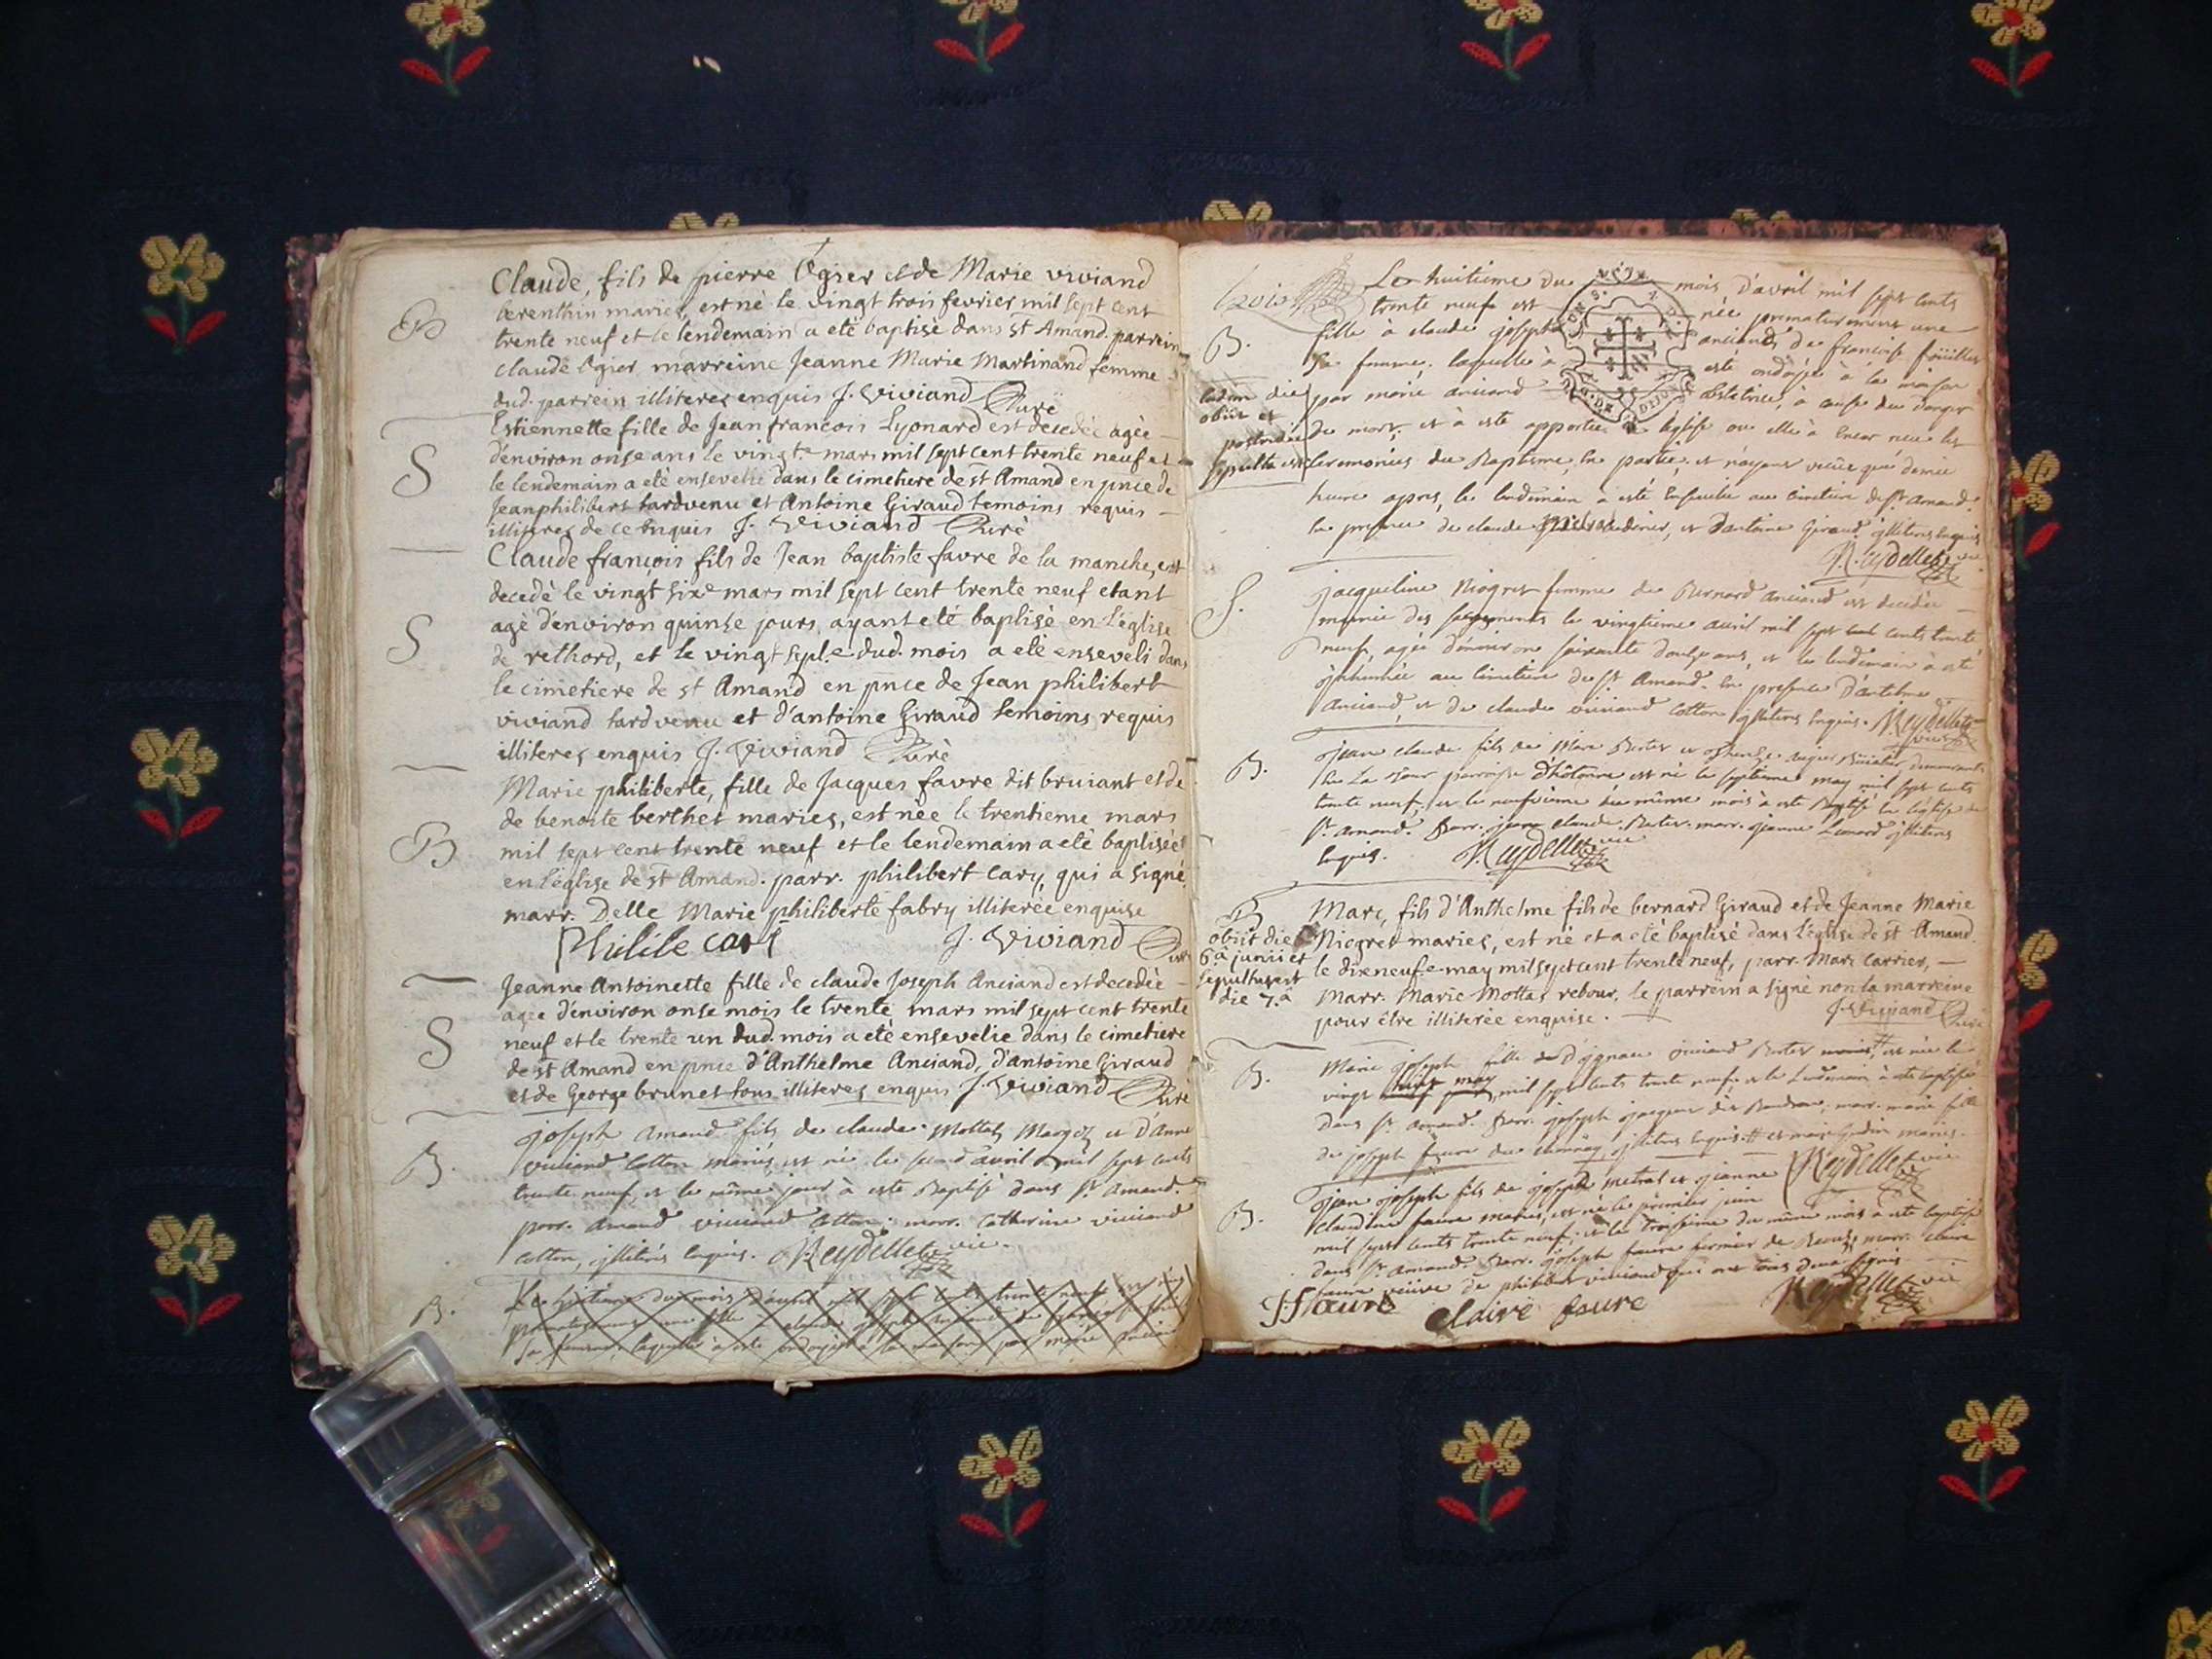 B
Claude, fils de pierre Ogier et de Marie viviand
berenthin mariés, est né le vingt trois fevrier mil sept cent
trente neuf et le lendemain a eté baptisé dans st Amand. parrein
claude Ogier marreine Jeanne Marie Martinand femme
dud. parrein illiteres enquis J. Viviand Curé
S
Estiennette fille de Jean francois Lyonard est decedée agée
d'environ onse ans le vingt.e mars mil sept cent trente neuf et
le lendemain a eté ensevelie dans le cimetiere de st Amand en pnce de
Jeanphilibert tardvenu et Antoine Giraud temoins requis
illiteres de ce enquis J. Viviand Curé
S
Claude françois fils de Jean baptiste favre de la manche, est
decedé le vingt six.e mars mil sept cent trente neuf etant
agé d'environ quinse jours, ayant eté baptisé en l'église
de rethord, et le vingt sept.e dud. mois a eté enseveli dans
le cimetiere de st Amand en pnce de Jean philibert
viviand tardvenu et d'antoine Giraud temoins requis
illiteres enquis J. Viviand Curé
B
Marie philiberte, fille de Jacques favre dit bruiant et de
de benoite berthet mariés, est née le trentieme mars
mil sept cent trente neuf et le lendemain a eté baptisée
en l'église de st Amand. parr. philibert Cary, qui a signé,
marr. Delle Marie philiberte fabry illiterée enquise
J. Viviand Curé
S
Jeanne Antoinette fille de claude Joseph Anciand est decedée
agée d'environ onse mois le trente mars mil sept cent trente
neuf et le trente un dud. mois a eté ensevelie dans le cimetiere
de st Amand en pnce d'Anthelme Anciand, d'antoine Giraud
et de George brunet tous illiteres enquis J. Viviand Curé
B.
joseph amand fils de claude Mottas Margoz et d'anne
viviand Cotton mariés est né le second avril mil sept cents
trente neuf, et le même jour à esté Baptisé dans st. amand.
parr. amand viviand Cotton; marr. Catherine viviand
Cotton, illiterés enquis. Reydellet vic.
B.
Le huitieme du mois d'avril mil sept cents trente neuf est née
prematurement une fille à claude joseph anciand de
sa femme, laquelle à esté ondoyée à la maison par marie anciand
Le huitieme du mois d'avril mil sept cents
B.
trente neuf est née prematurement une
fille à claude joseph anciand de françoise
sa femme, laquelle à esté ondoyée à la maison
par marie anciand obstetrice, à cause du danger
eadem die
obiit et
postridie
sepulta est
de mort, et à esté apportée à l'église ou elle à encor receu les
ceremonies du Baptême en partie, et n'ayant vecüe que demie
heure apres, le lendemain à esté ensevelie au cimetiere de st. amand.
en presence de claude et d'antoine Giraud illiteres enquis
Reydellet vic.
S.
jacqueline Niogret femme de Bernard anciand est decedée
munie des sacrements le vingtieme avril mil sept cents trente
neuf, agée d'environ soixante ans, et le lendemain à esté
inhumée au cimetiere de st Amand. en presence d'antelme
anciand, et de claude viviand Cotton illiteres enquis. Reydellet vic.
B.
jean claude fils de Marc Bertet et
parroisse d'hôtonne est né le septieme may mil sept cents
trente neuf, et le neufvieme du même mois à esté Baptisé en l'église de
st. amand. Parr. jean claude Bertet. marr. jeanne Leonard illiteres
enquis. Reydellet vic
B
obiit die
6.a junii et
sepultus est
die 7.a
Marc, fils d'Anthelme fils de bernard Giraud et de Jeanne Marie
Niogret mariés, est né et a eté baptisé dans l'église de st Amand
le dixneuf.e may mil sept cent trente neuf, parr. Marc Carrier,
Marr. Marie Mottas rebour. le parrein a signé non la marreine
pour être illiterée enquise. J. Viviand Curé
B.
Marie joseph fille de viviand Bertet est née le
vingt mil sept cents trente neuf, et le Lendemain à esté baptisée
dans st. amand. Parr. joseph jacques dit marr. marie fille
de joseph favre illiteres enquis. et mariés.
Reydellet vic
B.
jean joseph fils de joseph metral et jeanne
Claudine favre mariés, est né le premier juin
mil sept cents trente neuf, et le troisieme du même mois à esté baptisé
dans st. amand Parr. joseph favre fermier de marr. claire
favre veüve de philibert viviand qui ont tous deux signés
J favre claire favre Reydellet vic